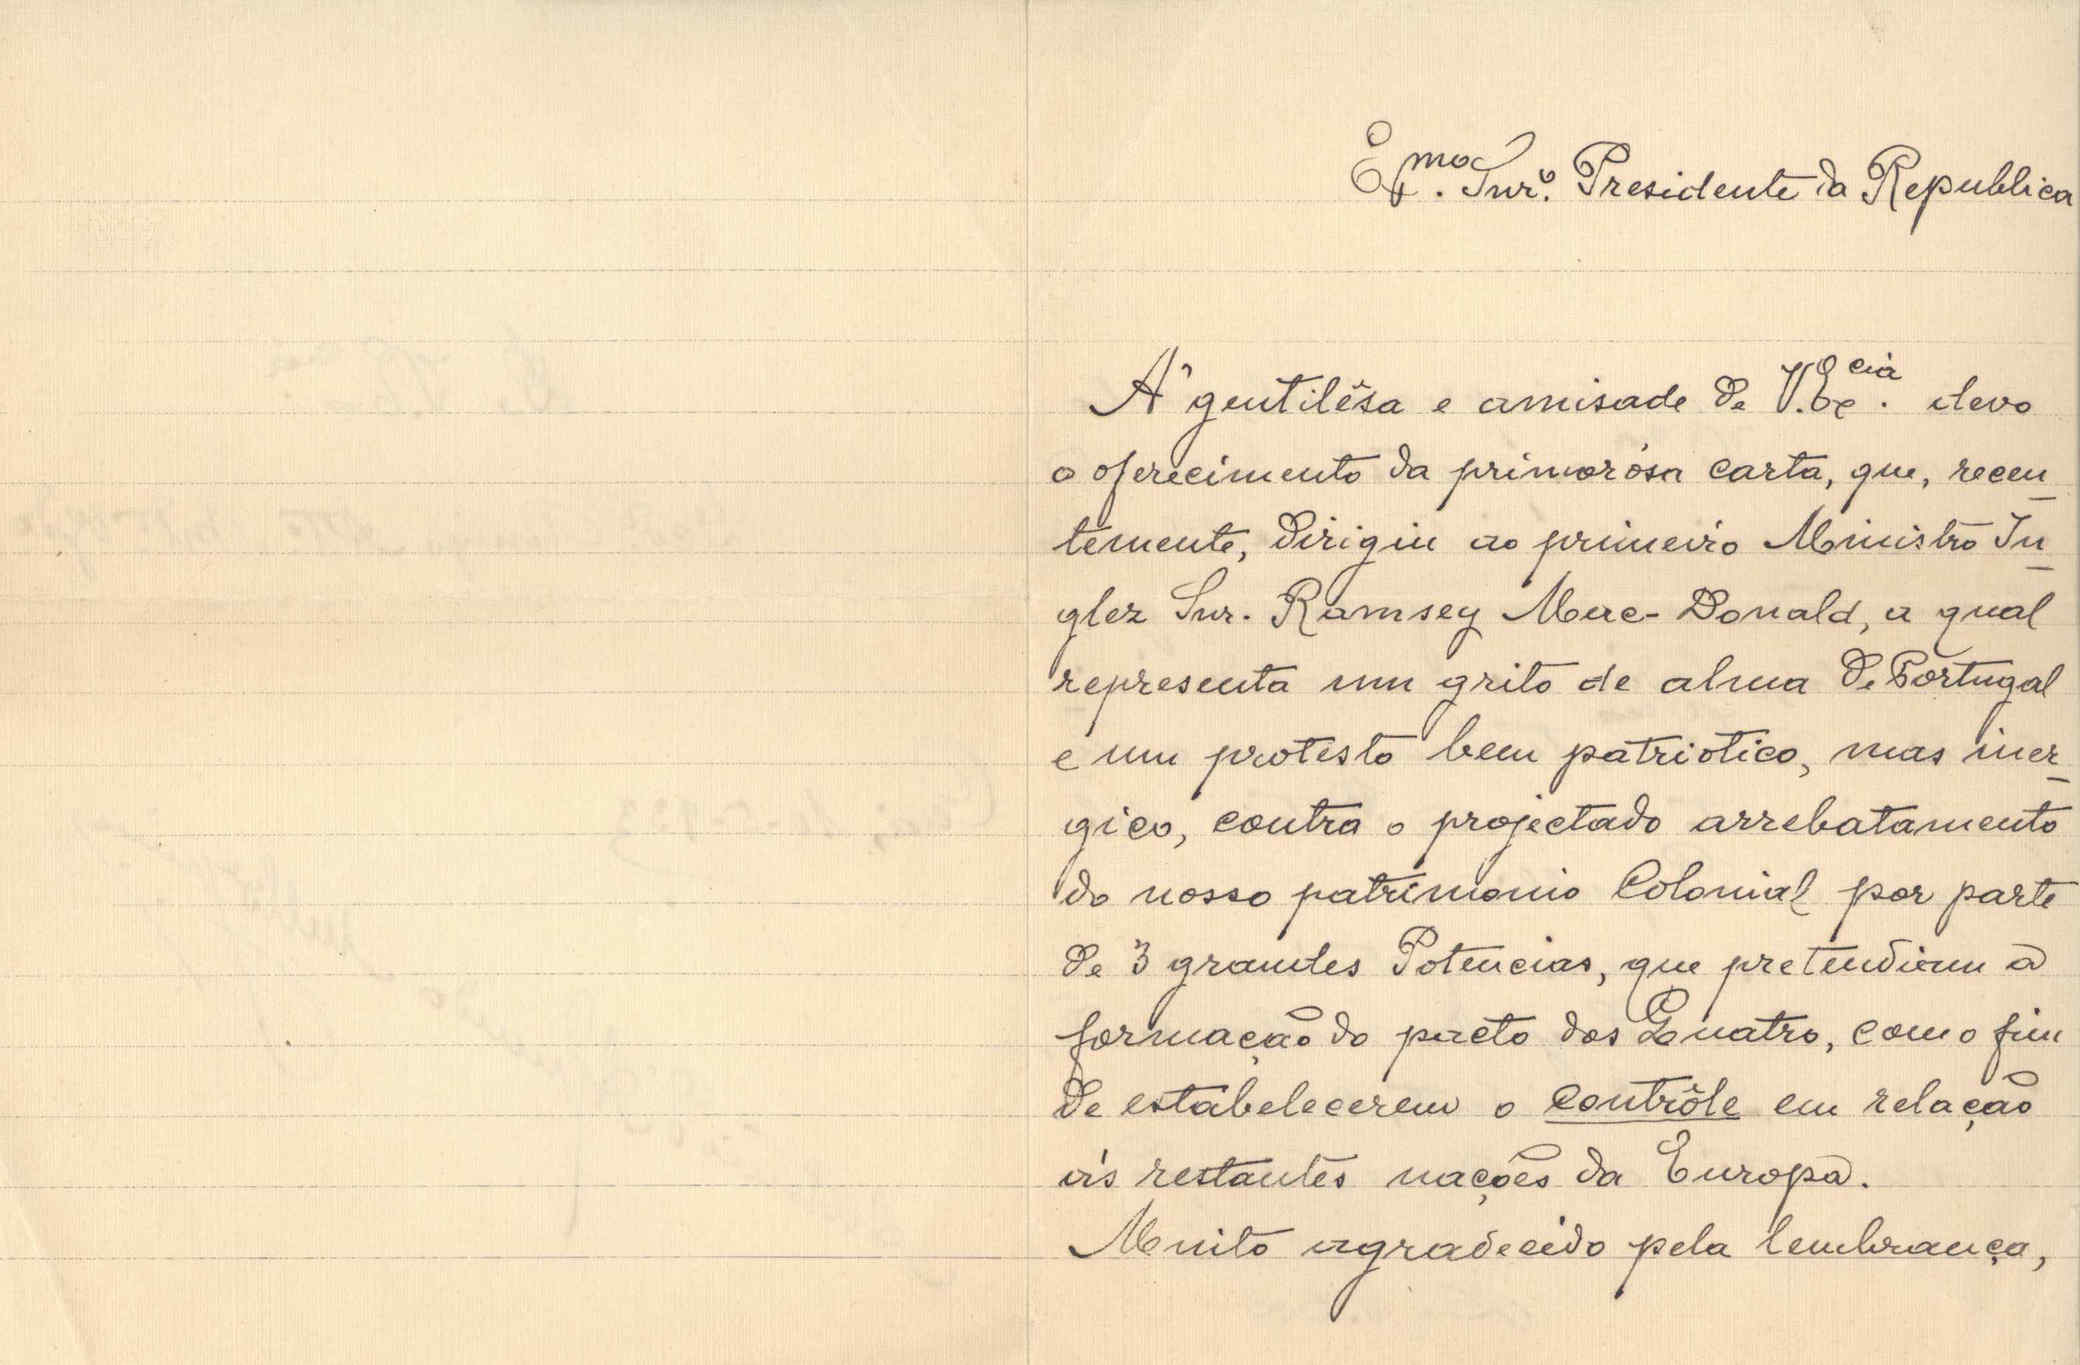 Exmo. Snr. Presidente da Republica
A' gentilêsa e amisade de V. Excia. devo
o oferecimento da primorósa carta, que, recen-
temente, dirigiu ao primeiro Ministro In-
glez Snr. Ramsey Mac-Donald, a qual
representa um grito de alma de Portugal
e um protesto bem patriotico, mas iner-
gico, contra o projectado arrebatamento
do nosso patrimonio Colonial por parte
de 3 grandes Potencias, que pretendiam a
formação do pacto dos Quatro, com o fim
de estabelecerem o contrôle em relação
ás restantes nações da Europa.
Muito agradecido pela lembrança,